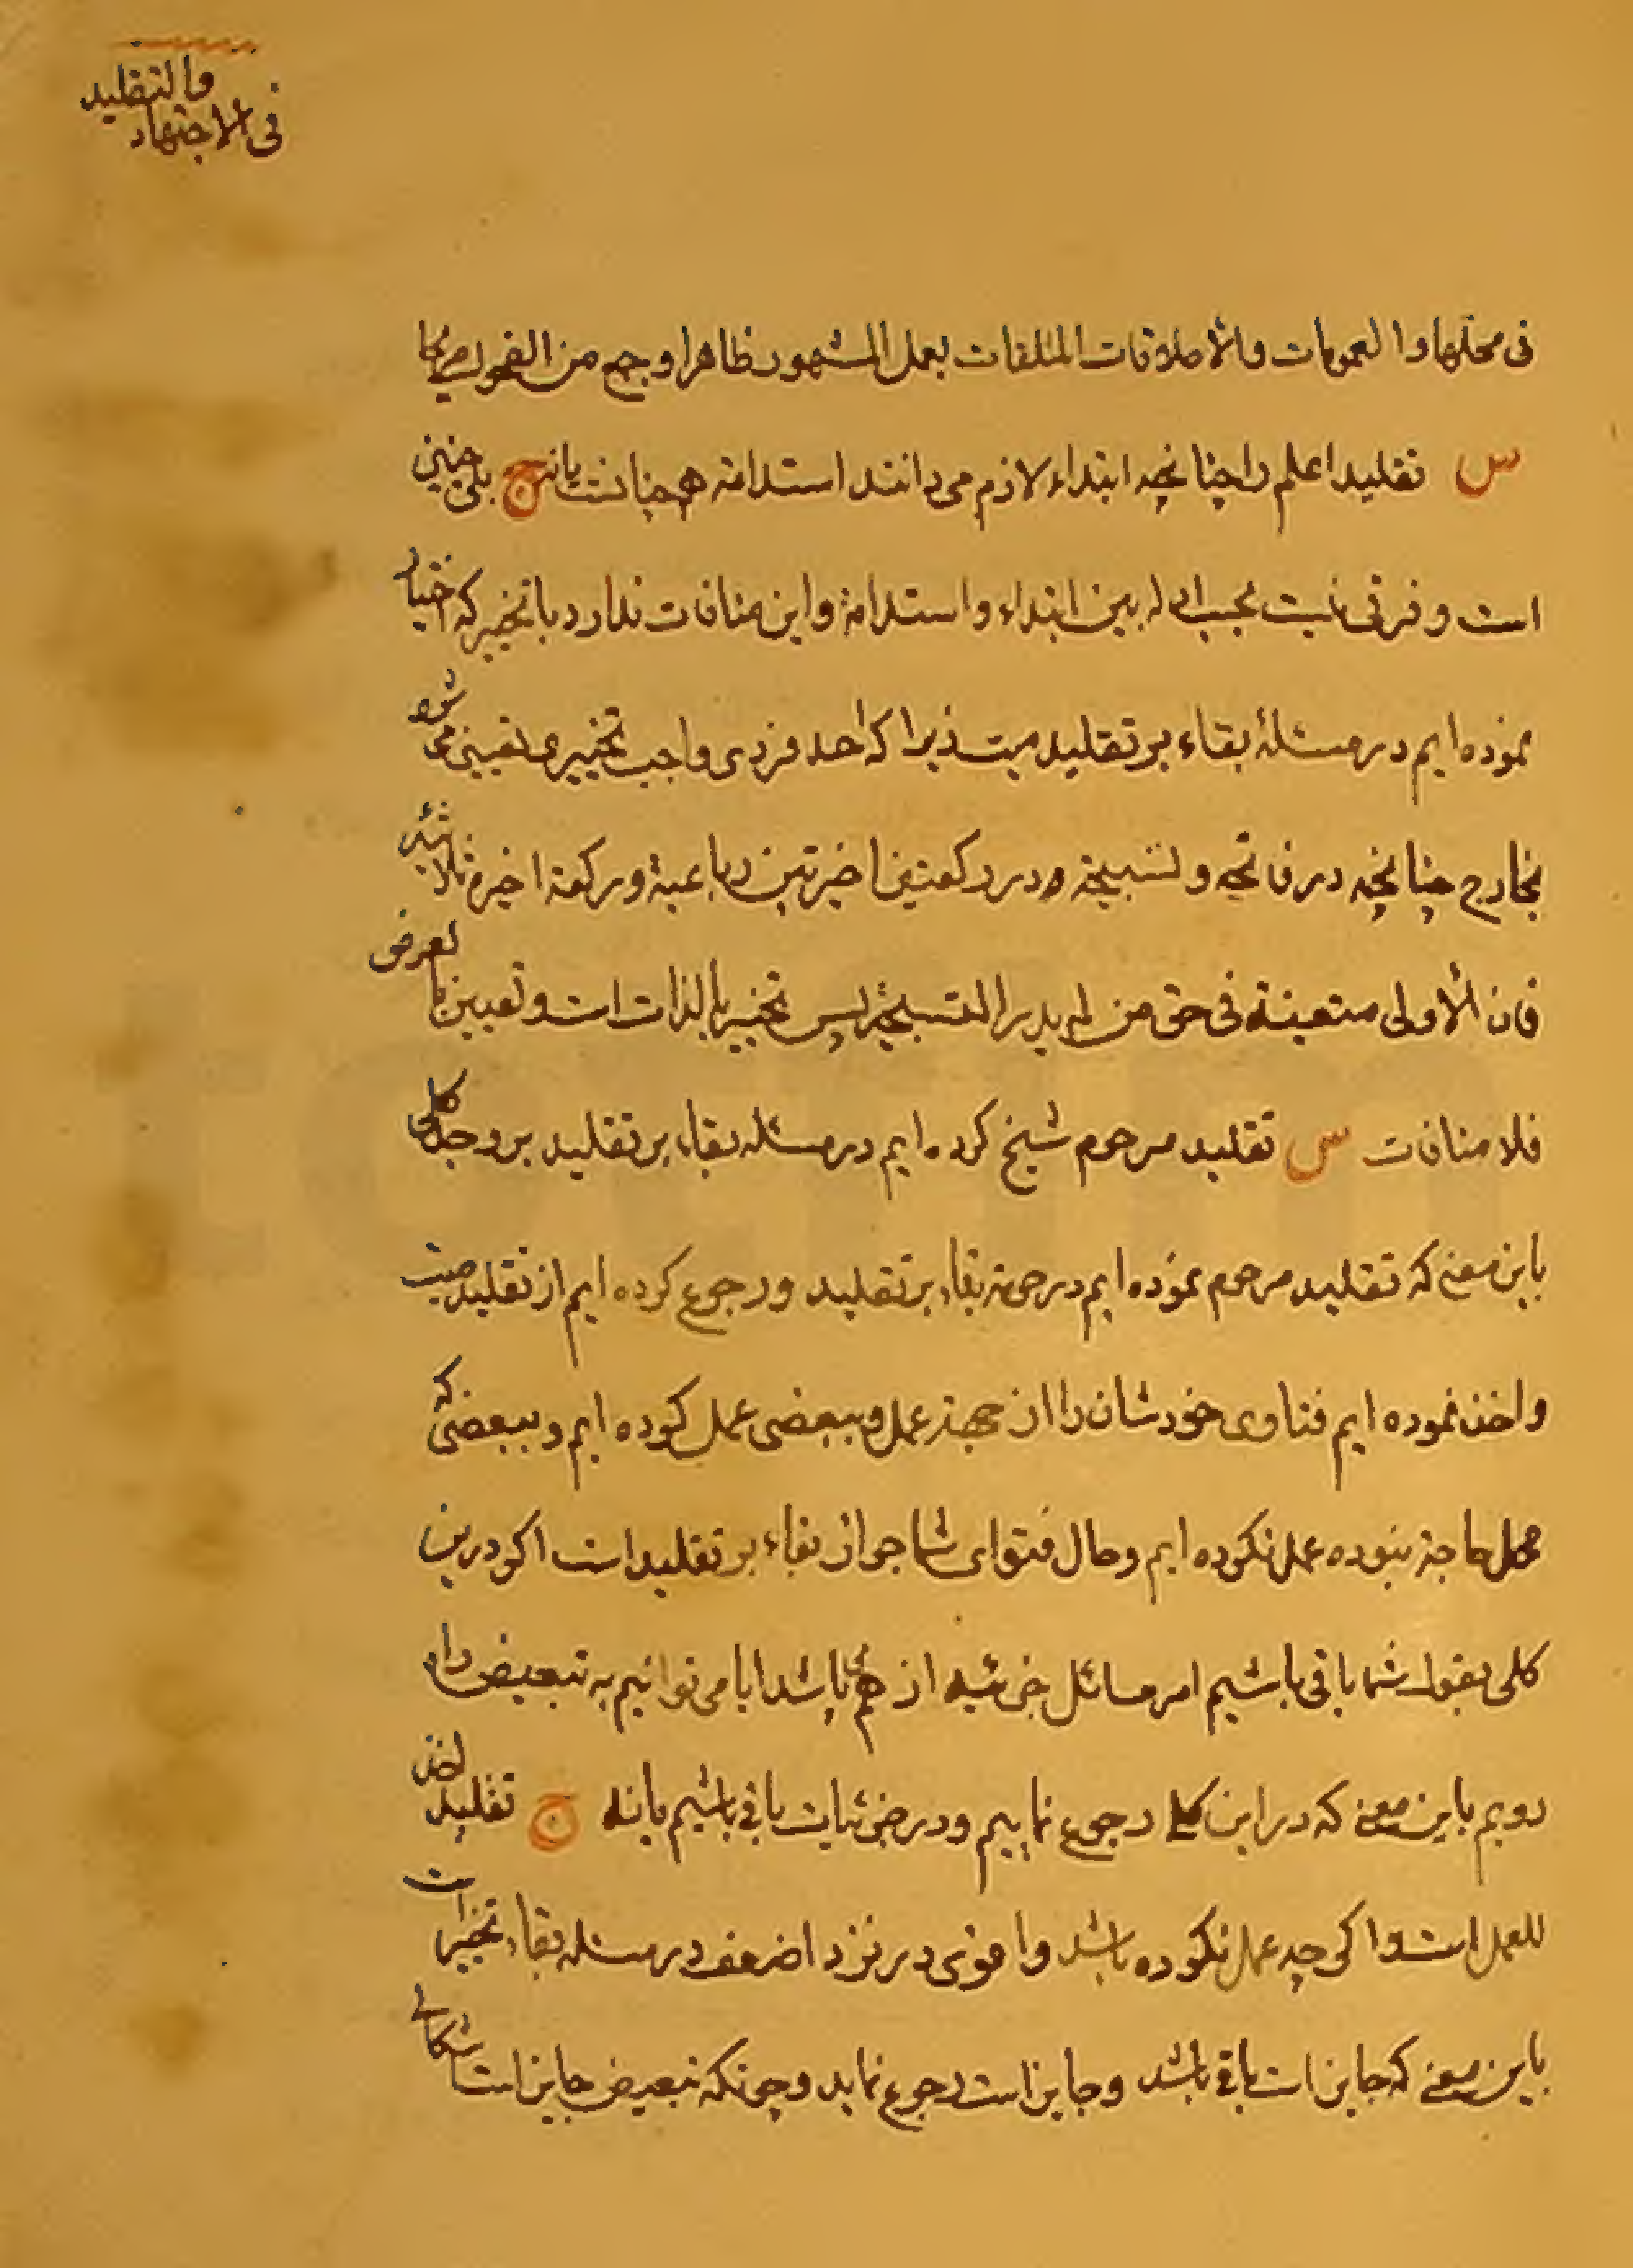 فی الاجتهاد والتقلید
فی محلها والعمومات والأطلاقات المتلقات بعمل المشهور ظاهرا وجمع من الفحول صریحا
س تقلید اعلم را چنانچه ابتداء لازم می دانند استدامة همچنانست یا نه ج بلی چنین
است و فرقی نیست بحسب ادله بین ابتداء و استدامة و این منافات ندارد با تخییر که اختیار
نموده ایم در مسئلهٔ بقاء بر تقلید میت زیرا که احد فردی واجب تخییری تعیینی می شود
بخارج چنانچه در فاتحه و تسبیحة در رکعتین اخیرتین رباعیة و رکعة اخیره ثلاثیه
فان الأولی متعینة فی حق من لم یدر التسبیحة پس تخییر بالذات است و تعیین بالعرض
فلا منافات س تقلید مرحوم شیخ کرده ایم در مسئله بقاء بر تقلید بر وجه کلی
باین معنی که تقلید مرحوم نموده ایم در حرمة بقاء بر تقلید و رجوع کرده ایم از تقلید میت
واخذ نموده ایم فتاوی خودشان را از جهة عمل و ببعضی عمل کرده ایم و ببعضی که
محل حاجة نبوده عمل نکرده ایم و حال فتوای شما جواز بقاء بر تقلید است اگر درین
کلی بقول شما باقی باشیم امر مسائل جزئیه از هم می پاشد ایا می توانیم به تبعیض راه
رویم باین معنی که در این کلی رجوع نماییم و در جزئیات باقی باشیم یا نه ج تقلید اخذ
للعمل است و اگر چه عمل نکرده باشد و اقوی در نزد اضعف در مسئله بقاء تخییر است
باین معنی که جایز است باقی باشد و جایز است رجوع نماید و چونکه تبعیض جایز است اشکالی